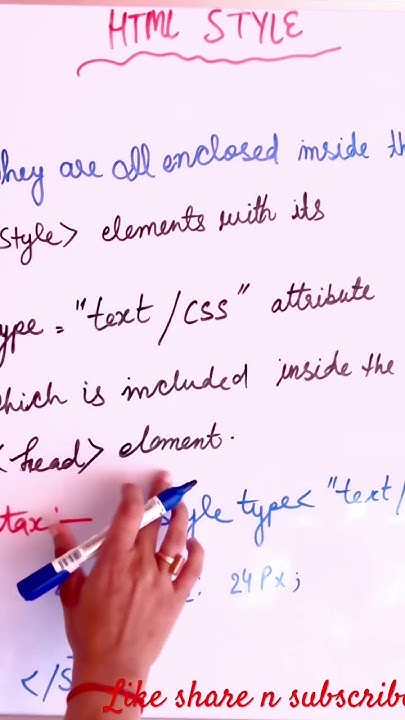 HTML STYLE
they are all enclosed inside th
Style> elements with its
ype = "text / CSS" attribute
which is included inside the
<head> element.
tax :- style type< "text/
: 24Px;
</S
Like share n subscribe